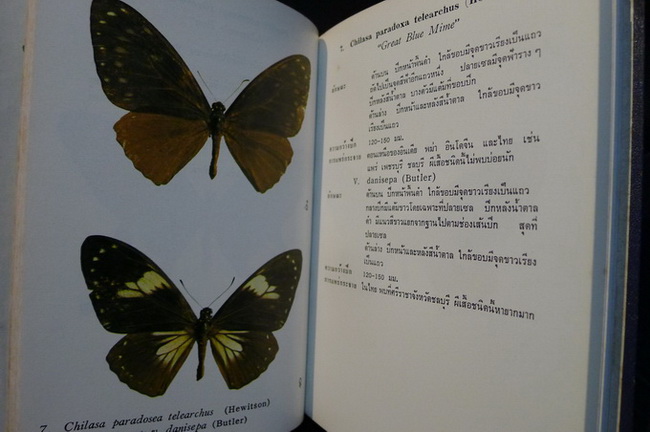 7. Chilasa paradosea telearchus (Hewitson)
danisepa (Butler)
7. Chilasa paradoxa telearchus
"Great Blue Mime"
ลักษณะ
ด้านบน ปีกหน้าพื้นดำ ใกล้ขอบมีจุดขาวเรียงเป็นแถว
ถัดไปเป็นจุดสีฟ้าอีกแถวหนึ่ง ปลายเซลมีจุดฟ้าราง ๆ
ปีกหลังสีน้ำตาล บางตัวมีแต้มที่ขอบปีก
ด้านล่าง ปีกหน้าและหลังสีน้ำตาล ใกล้ขอบมีจุดขาว
เรียงเป็นแถว
ความกว้างปีก 120-150 มม.
ตอนเหนือของอินเดีย พม่า อินโดจีน และไทย เช่น
แพร่ เพชรบุรี ชลบุรี ผีเสื้อชนิดนี้ไม่พบบ่อยนัก
V. danisepa (Butler)
ลักษณะ ด้านบน ปีกหน้าพื้นดำ ใกล้ขอบมีจุดขาวเรียงเป็นแถว
กลางปีกมีแต้มขาวโดยเฉพาะที่ปลายเซล ปีกหลังน้ำตาล
ดำ มีแนวสีขาวแยกจากฐานไปตามช่องเส้นปีก สุดที่
ปลายเซล
ด้านล่าง ปีกหน้าและหลังสีน้ำตาล ใกล้ขอบมีจุดขาวเรียง
เป็นแถว
ความกว้างปีก 120-150 มม.
ในไทย พบที่ศรีราชาจังหวัดชลบุรี ผีเสื้อชนิดนี้หายากมาก